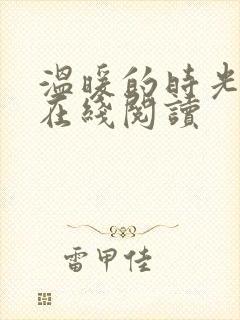 温暖的時光
在綫閱讀
雷甲佳